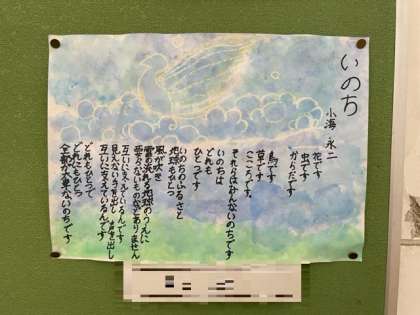 いのち
小海 永二
花です
虫です
からだです
鳥です
草です
こころです
それらはみんないのちです
いのちは
どれも
ひとつです
いのちのふるさと
地球もひとつ
風が吹き
雲の流れる地球のうえに
要らないものなどありません
互いに支えているんです
見えない手を出し 声を出し
互いに支えているんです
どれもひとつで
どれにもひとつ
全部が大事ないのちです